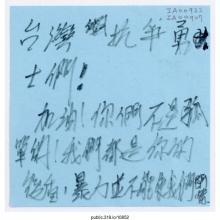 IA00922
IA00909
台灣抗爭勇
士們!
加油!你們不是孤
單的!我們都是你的
後盾,暴力並不能使我們
public.318.io/10853